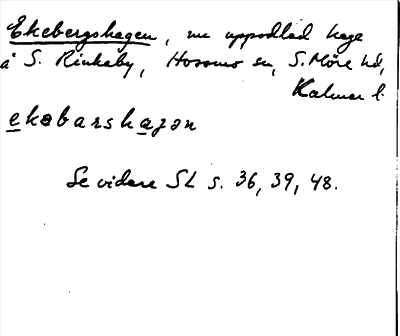 Ekebergshagen, nu uppodlad hage
å S. Rinkaby, Hossmo sn, S. Möre hd,
Kalmar l.
ekəbarshaʒən
Se vidare SL s. 36, 39, 48.